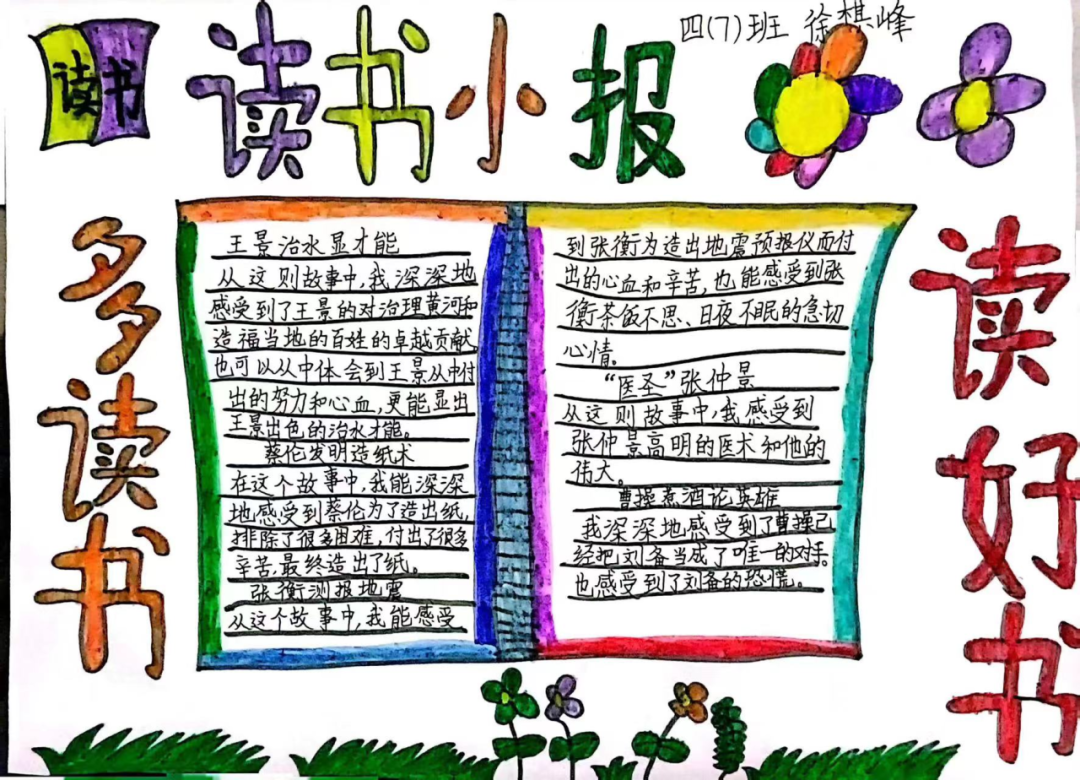 四(7)班 徐棋峰
读书
读书小报
多读书
读好书
王景治水显才能
从这则故事中,我深深地
感受到了王景的对治理黄河和
造福当地的百姓的卓越贡献
也可以从中体会到王景从中付
出的努力和心血,更能显出
王景出色的治水才能。
蔡伦发明造纸术
在这个故事中,我能深深
地感受到蔡伦为了造出纸,
排除了很多困难,付出了很多
辛苦,最终造出了纸。
张衡测报地震
从这个故事中,我能感受
到张衡为造出地震预报仪而付
出的心血和辛苦,也能感受到张
衡茶饭不思、日夜不眠的急切
心情。
“医圣”张仲景
从这则故事中,我感受到
张仲景高明的医术和他的
伟大。
曹操煮酒论英雄
我深深地感受到了曹操已
经把刘备当成了唯一的对手
也感受到了刘备的恐慌。